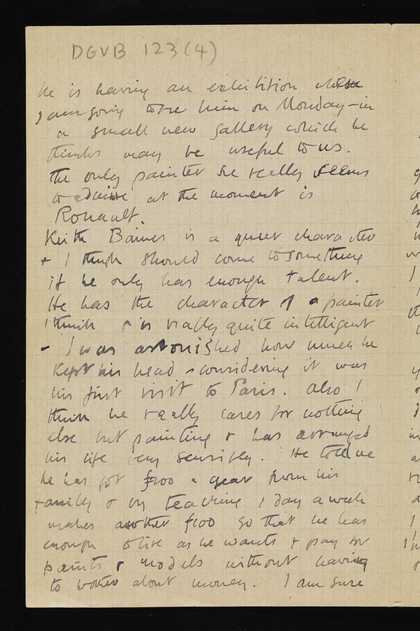 DGVB 123(4)
he is having an exhibition where
I am going to see him on Monday – in
a small new gallery which he
thinks may be useful to us.
The only painter he really seems
to admire at the moment is
Rouault.
Keith Baines is a queer character
+ I think should come to something
if he only has enough talent.
He has the character of a painter
I think + is really quite intelligent
– I was astonished how much he
kept his head considering it was
his first visit to Paris. Also I
think he really cares for nothing
else but painting + has arranged
his life very sensibly. He told me
he has got £100 a year from his
family + by teaching 1 day a week
makes another £100 so that he has
enough to live as he wants + pay for
paints + models without having
to bother about money. I am sure